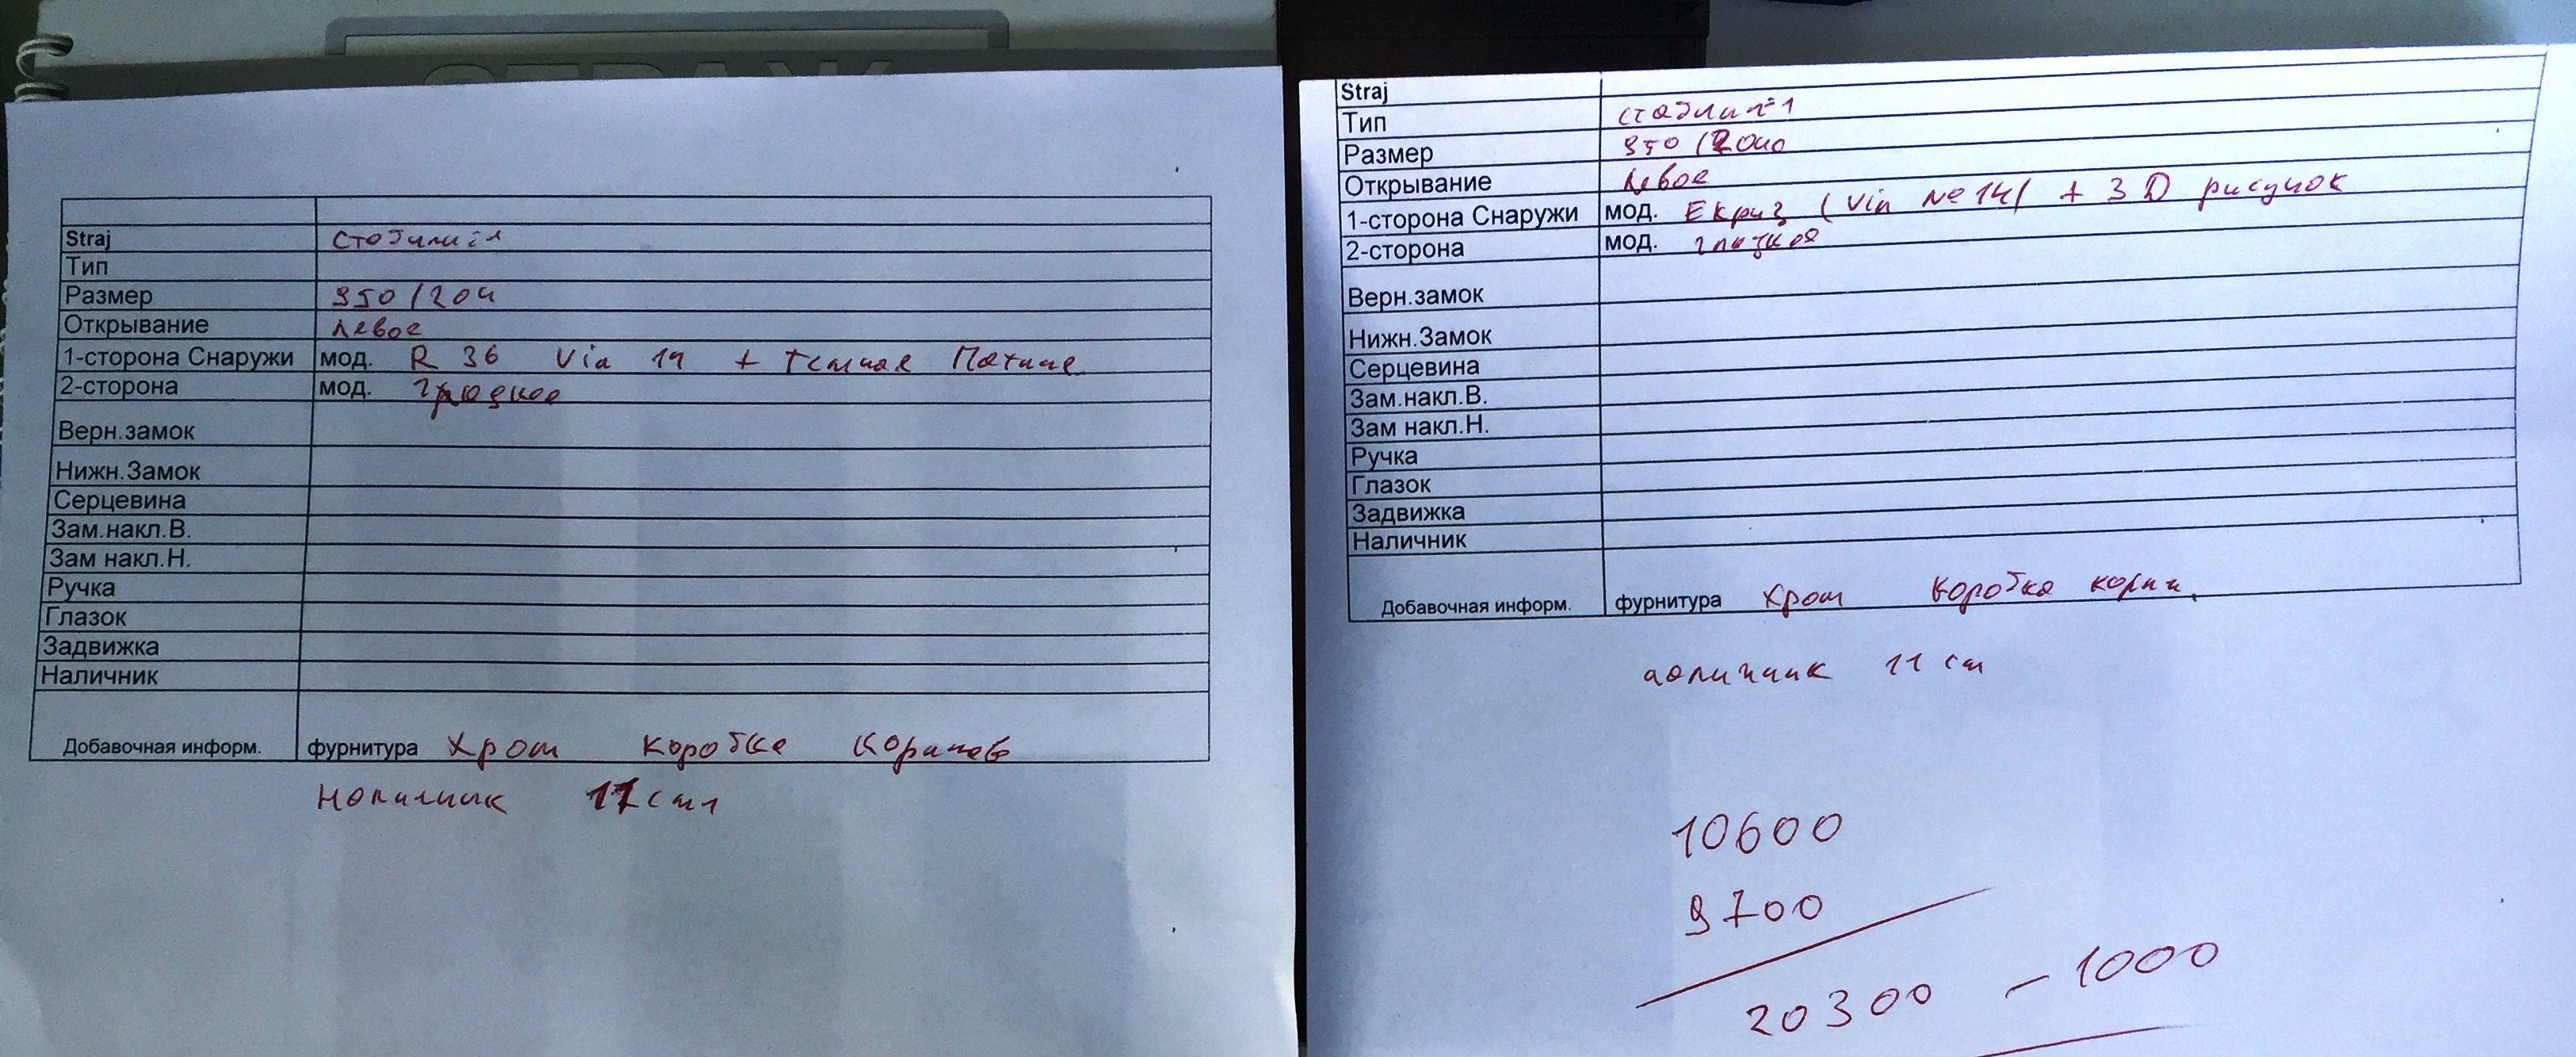 Straj
Тип
Размер 950/204
Открывание левое
1-сторона Снаружи мод. R 36 Vin 14 + темная Патина
2-сторона мод. гладкая
Верн.замок
Нижн.Замок
Серцевина
Зам.накл.В.
Зам накл.Н.
Ручка
Глазок
Задвижка
Наличник
Добавочная информ. фурнитура Хром коробка коричнев
Наличник 11 см
Straj
Тип
Размер 950/2040
Открывание левое
1-сторона Снаружи мод. Екриз (Vin № 14) + 3D рисунок
2-сторона мод. гладкая
Верн.замок
Нижн.Замок
Серцевина
Зам.накл.В.
Зам накл.Н.
Ручка
Глазок
Задвижка
Наличник
Добавочная информ. фурнитура Хром коробка корич.
наличник 11 см
10600
9700
20300 - 1000